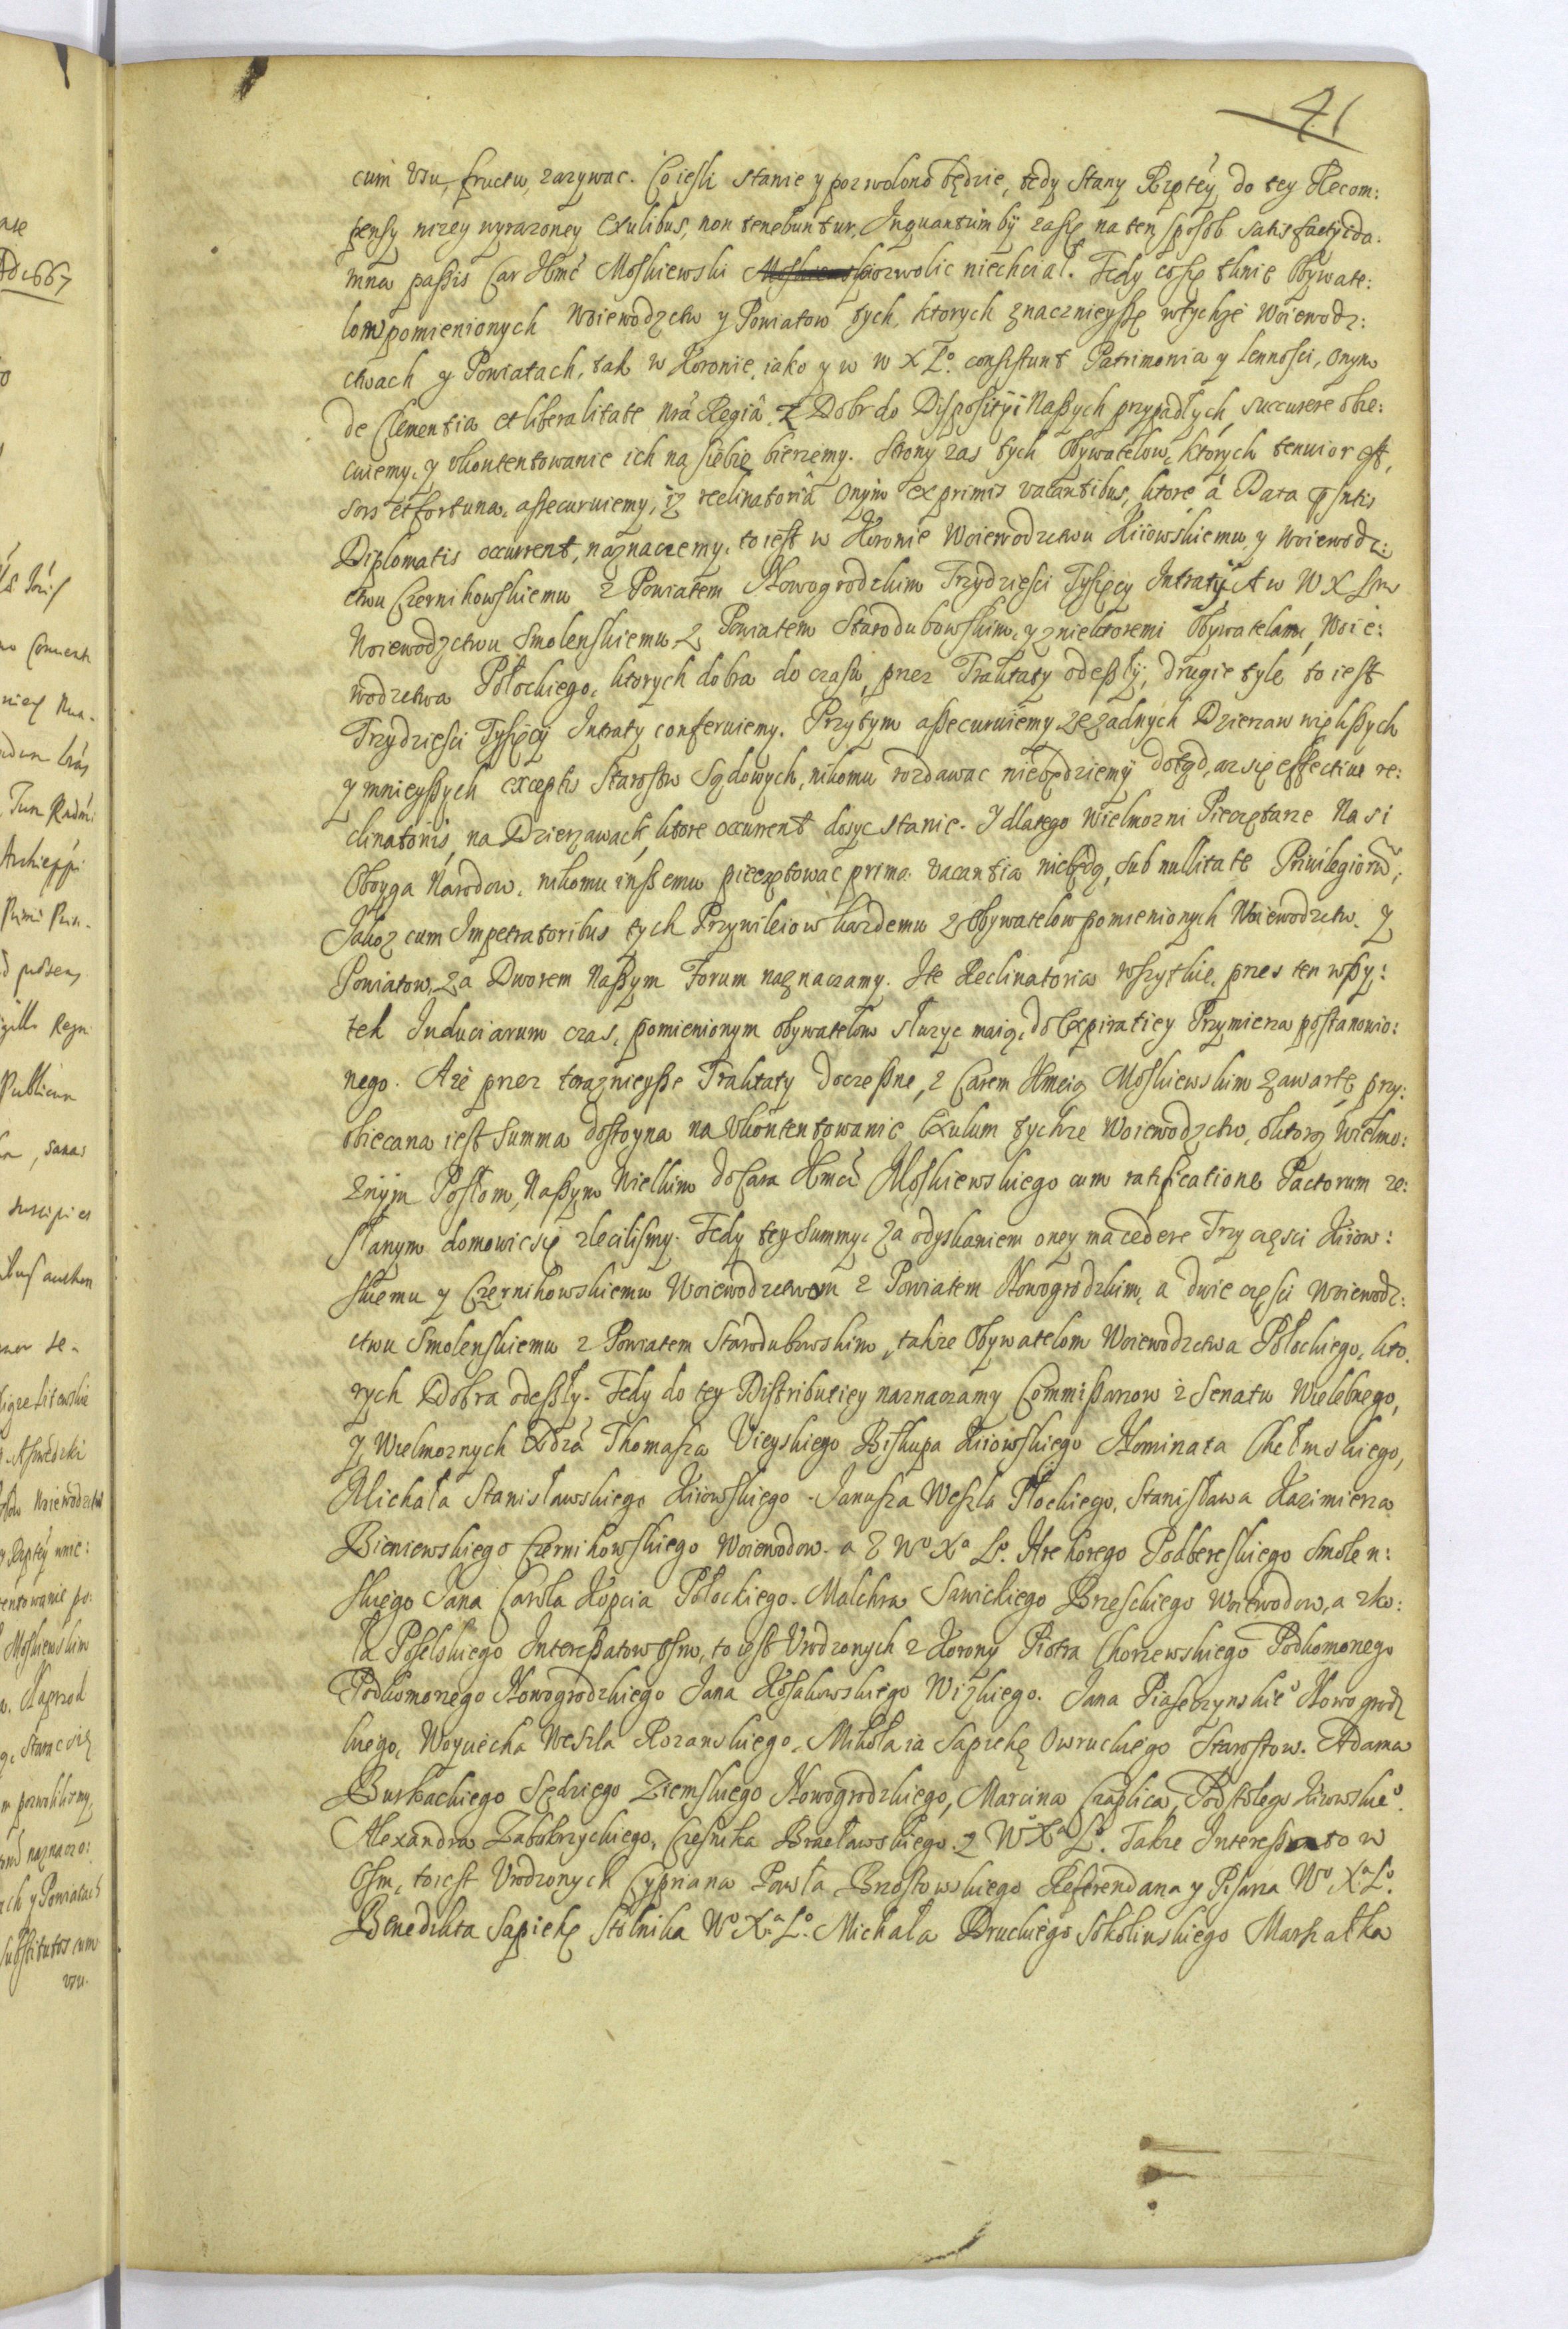 41
cum usu, fructu, zazywac. Co iesli stanie y pozwolono będzie, tedy Stany Rzptey do tey Recom:
pensy nizey wyrazoney Exulibus, non tenebuntur. Inquantum by zasię na ten sposob satisfactyi da:
mna passis Car Jłmć Moskiewski pozwolic niechciał. Tedy co się tknie Obywate:
low pomienionych Woiewodzctw y Powiatow tych, ktorych znacznieysze w tychze Woiewodz:
ctwach y Powiatach, tak w Koronie, iako y w W X Lo. consistunt Patrimonia y lennosci, onym
de Clementia et liberalitate nrâ Regiâ, z Dobr do Disposityi Naszych przypadłych, succurere obie:
cuiemy, y ukontentowanie ich na siebie bierzemy. Strony zas tych Obywatelow, ktorych tenuior est,
sors et fortuna, assecuruiemy, iz reclinatoria onym ex primis vacantibus, ktore á Data pntis
Diplomatis occurrent, naznaczemy, to iest w Koronie Woiewodzctwu Kiiowskiemu, y Woiewodz:
ctwu Czernihowskiemu z Powiatem Nowogrodzkim Trzydziesci Tysięcy Intraty. A w W X Lm
Woiewodzctwu Smolenskiemu z Powiatem Starodubowskim, y z niektoremi Obywatelami, Woie:
wodzctwa Połockiego, ktorych dobra do czasu, przez Traktaty odeszły, drugie tyle to iest
Trzydziesci Tysięcy Intraty conferuiemy. Przytym assecuruiemy ze zadnych Dzierzaw większych
y mnieyszych exceptis Starostw Sądowych, nikomu rozdawac niebędziemy dotąd, az się effective re:
clinatoriis, na Dzierzawach, ktore occurrent dosyc stanie. Y dlatego Wielmozni Pieczętarze Nasi
Oboyga Narodow, nikomu inszemu pieczętowac prima vacantia niebędą, sub nullitate Privilegiorũ,
Jakoz cum Impetratoribus tych Przywileiow kazdemu z Obywatelow pomienionych Woiewodzctw. Y
Powiatow, za Dworem Naszym Forum naznaczamy. Ite Reclinatoria wszytkie, przes ten wszy:
tek Induciarum czas, pomienionym obywatelom słuzyc maią, do Expiratiey Przymierza postanowio:
nego. A ze przez teraznieysze Traktaty doczesne, z Carem Jłmcią Moskiewskim zawarte, przy:
obiecana iest Summa dostoyna na Ukontentowanie Exulum tychze Woiewodzctw, o ktorą Wielmo:
znym Posłom, Naszym Wielkim do Cara Jłmci Moskiewskiego cum ratificatione Pactorum ze:
słanym domowic się zlecilismy. Tedy tey Summy, za odyskaniem oney ma cedere Trzy części Kiiow:
skiemu y Czernihowskiemu Woiewodzctwom z Powiatem Nowogrodzkim, a dwie części Woiewodz:
ctwu Smolenskiemu z Powiatem Starodubowskim, takze Obywatelom Woiewodzctwa Połockiego, kto:
rych Dobra odeszły. Tedy do tey Distributiey naznaczamy Commissarzow z Senatu Wielebnego,
y Wielmoznych Xdza Thomasza Uieyskiego Biskupa Kiiowskiego Nominata Chełmskiego,
Michała Stanisławskiego Kiiowskiego. Janusza Weszla Płockiego, Stanisława Kazimierza
Bieniewskiego Czernihowskiego Woiewodow. a z Wo Xa Lo. Hrehorego Podbereskiego Smolen:
skiego Jana Carola Kopcia Połockiego. Malchra Sawickiego Brzeskiego Woiewodow, a z ko:
ła Poselskiego Interessatow osm, to iest Urodzonych z Korony Piotra Chorzewskiego Podkomorzego
Podkomorzego Nowogrodzkiego Jana Kossakowskiego Wizkiego. Jana Piaseczynskieo Nowogrodz
kiego, Woyciecha Weszla Rozanskiego, Mikołaia Sapiehę Owruckiego Starostow. Adama
Burkackiego Sędziego Ziemskiego Nowogrodzkiego, Marcina Czaplica, Podstolego Kiiowskieo.
Alexandra Zabokrzyckiego, Czesnika Bracławskiego. z Wo Xa Lo. Takze Interessatow
Osm, to iest Urodzonych Cypriana Pawła Brzostowskiego Referendarza y Pisarza Wo Xa Lo.
Benedikta Sapiehę Stolnika Wo Xa Lo. Michała Druckiego Sokolinskiego Marszałka